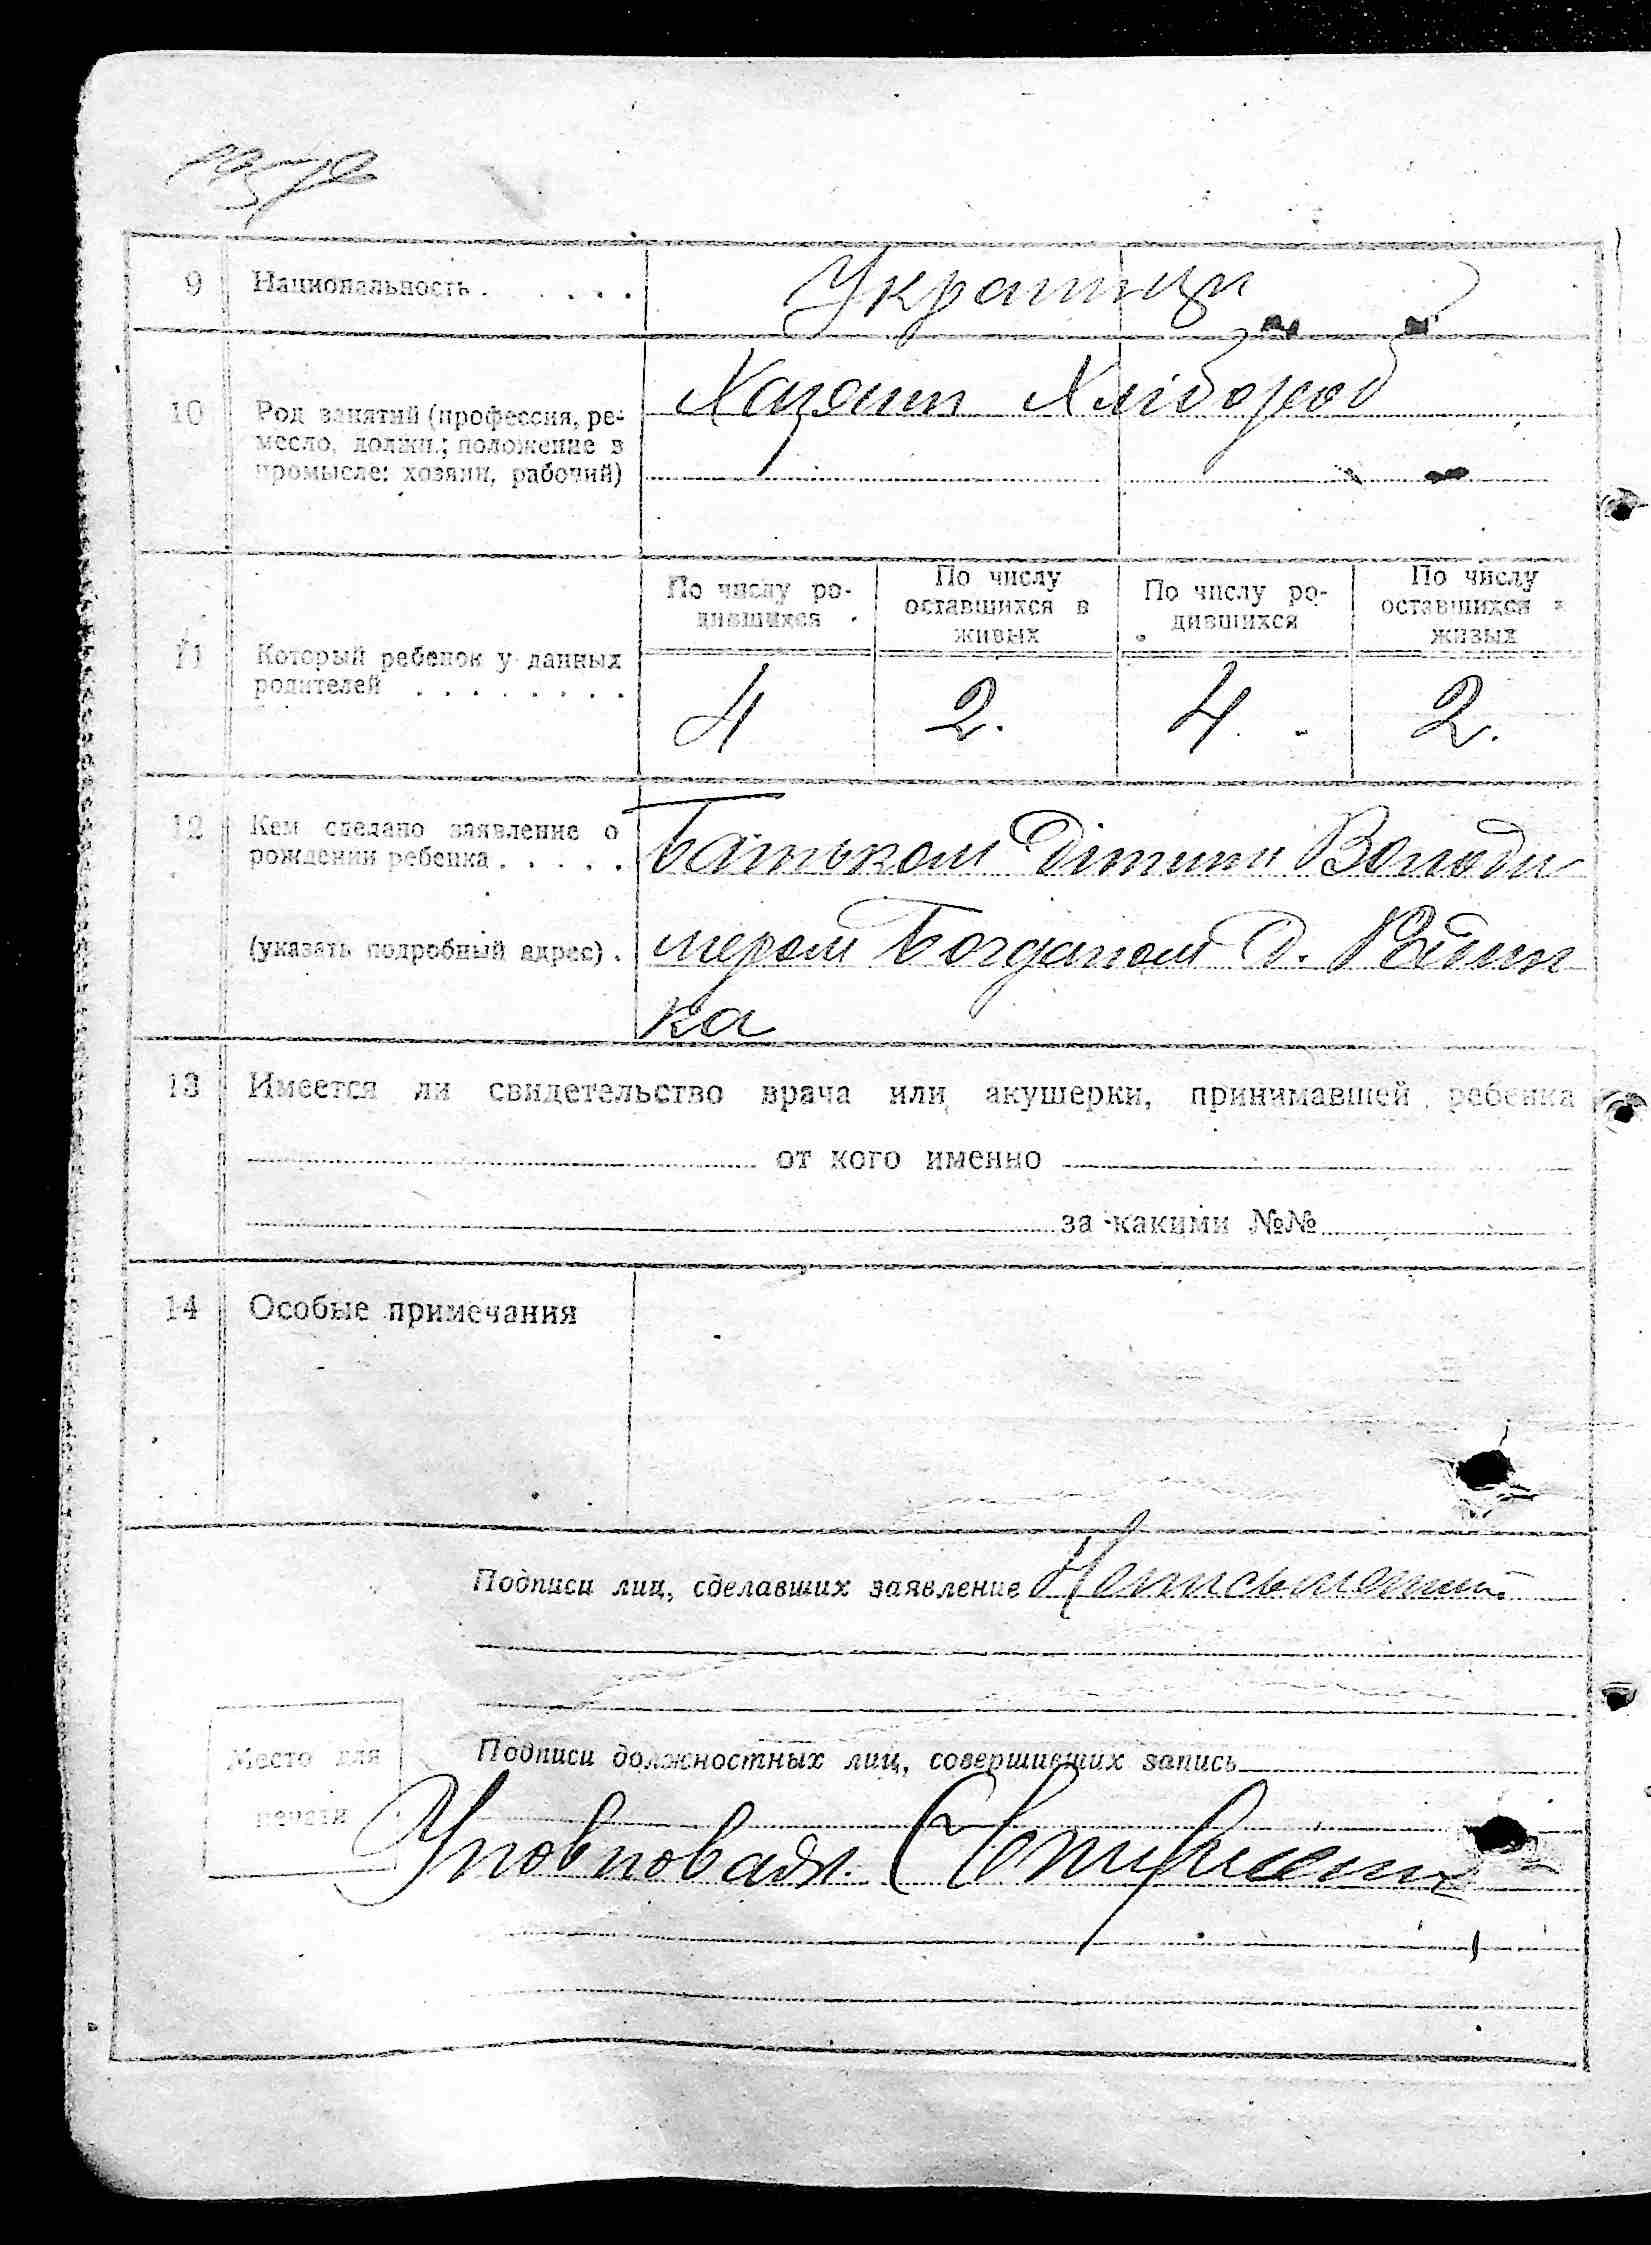 9 Национальность . . . . . . Українці
10 Род занятий (профессия, ре-
месло, должн.; положение в
промысле: хозяин, рабочий)
Хазяин Хлібороб
11 Который ребенок у данных
родителей . . . . . . . .
По числу ро-
дившихся
По числу
оставшихся в
живых
По числу ро-
дившихся
По числу
оставшихся в
живых
4 2. 4. 2.
12 Кем сделано заявление о
рождении ребенка . . . . .
(указать подробный адрес) .
Батьком Дітини Володи
мером Богданом д.
ка
13 Имеется ли свидетельство врача или акушерки, принимавшей ребенка
от кого именно
за какими №№
14 Особые примечания
Подписи лиц, сделавших заявление Неписьменний
Подписи должностных лиц, совершивших запись
Место для
печати